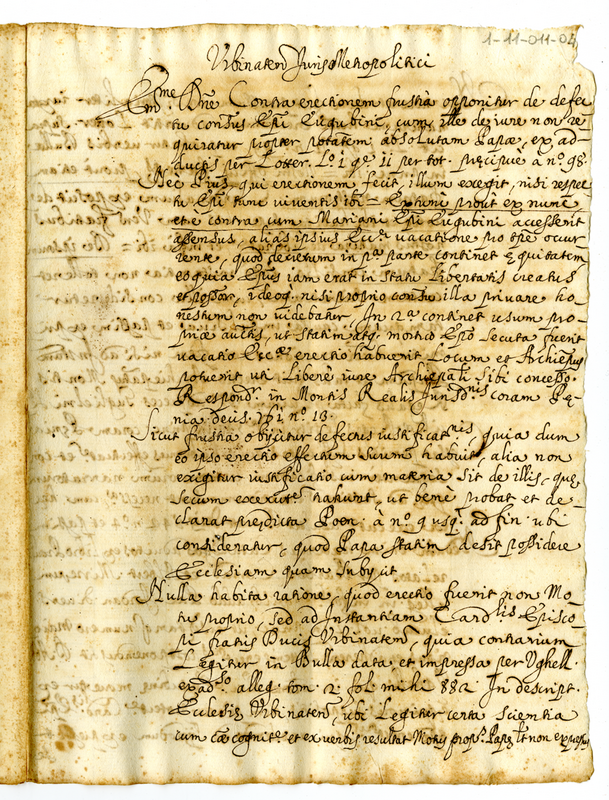 1-11-011-04
Urbinaten Juris Metropolitici
Eme Dne Contra erectionem frustra opponitur de defec
tu consus Epi Eugubini, cum ille de iure non re
quiratur propter potatem absolutam Papæ, ex ad-
ductis per Lotter. L.º 1 qe 11 per tot. precipue à nº 98.
Nec Pius, qui erectionem fecit, illum exegit, nisi respec
tu Epi tunc viventis ibi = Ex nunc prout ex nunc
et e contra cum Mariani Epi Eugubini accesserit
assensus, alias ipsius Eccæ vacatione pro tpe occur
rente, quod decretum in pa parte continet equitatem
eo quia Epus iam erat in statu Libertatis creatus
et posser, ideoq. nisi proprio consu illa privare ho-
nestum non videbatur. In 2a continet usum pro-
priæ auctis, ut statim atq. mortuo Epo secuta fuerit
vacatio Eccæ erectio habuerit Locum et Archiepus
potuerit uti Liberè iure Archiepali sibi concesso.
Respond. in Montis Realis Jurisdnis coram Pe-
nia decis. nº 18.
Sicut frustra obijcitur defectus iustificatnis, quia dum
eo ipso erectio effectum suum habuit, alia non
exigitur iustificatio cum materia sit de illis, que
secum habunt, ut bene probat et de-
clarat predicta Poen. à nº 9 usq. ad fin. ubi
consideratur, quod Papa statim desit possidere
Ecclesiam quam subijcit
Nulla habita ratione, quod erectio fuerit non Mo-
tu proprio, sed ad Instantiam Cardlis Episco-
pi fratris Ducis Urbinaten, quia contrarium
Legitur in Bulla data, et impressa per Ughell.
ex adso alleg. tom. 2. fol. mihi 882 In descript.
Ecclesiæ Urbinaten, ubi Legitur certa scientia
cum cæ cognite. et ex verbis resultat Motus propr. Papæ non expressus